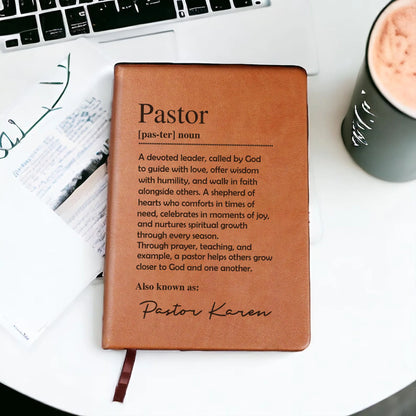 Pastor
[pas-ter] noun
A devoted leader, called by God
to guide with love, offer wisdom
with humility, and walk in faith
alongside others. A shepherd of
hearts who comforts in times of
need, celebrates in moments of joy,
and nurtures spiritual growth
through every season.
Through prayer, teaching, and
example, a pastor helps others grow
closer to God and one another.
Also known as:
Pastor Karen